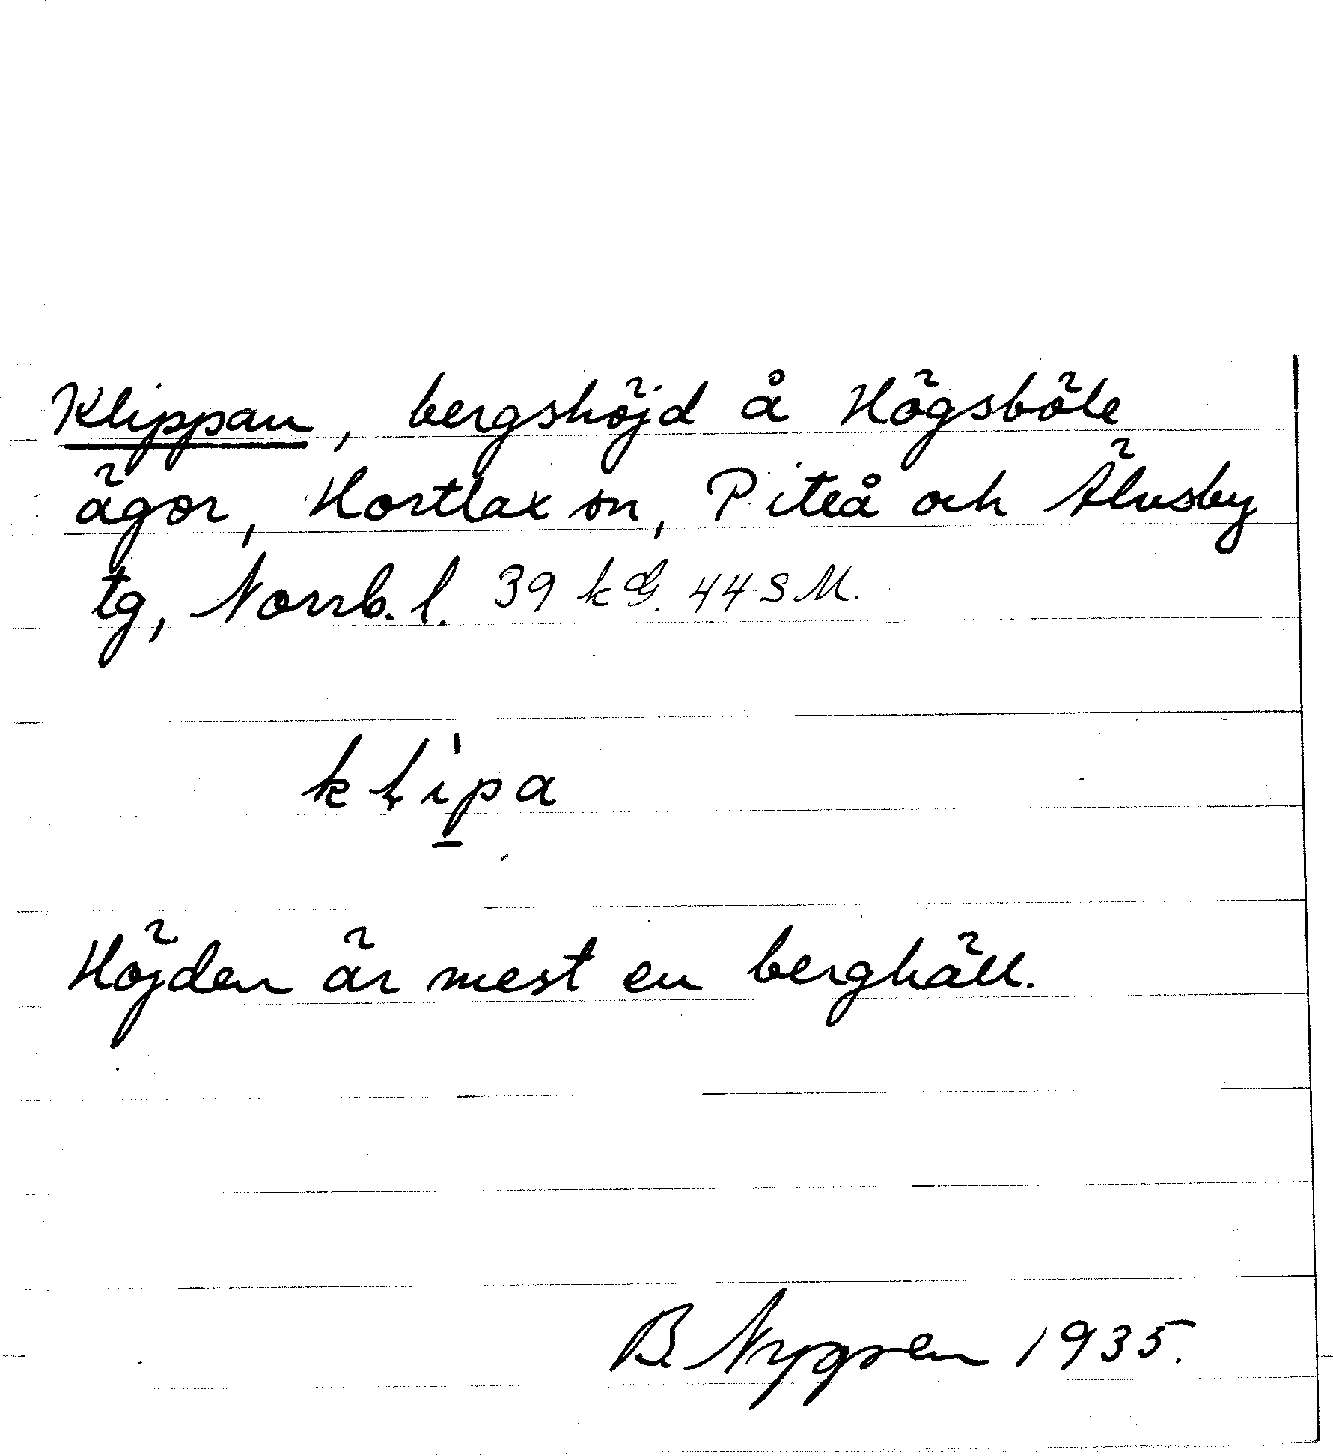 Klippan, bergshöjd å Högsböle
ägor, Hortlax sn, Piteå och Älvsby
tg, Norrb. l. 39 kG. 44 S M.
kłi̱pa
Höjden är mest en berghäll.
B. Nygren 1935.